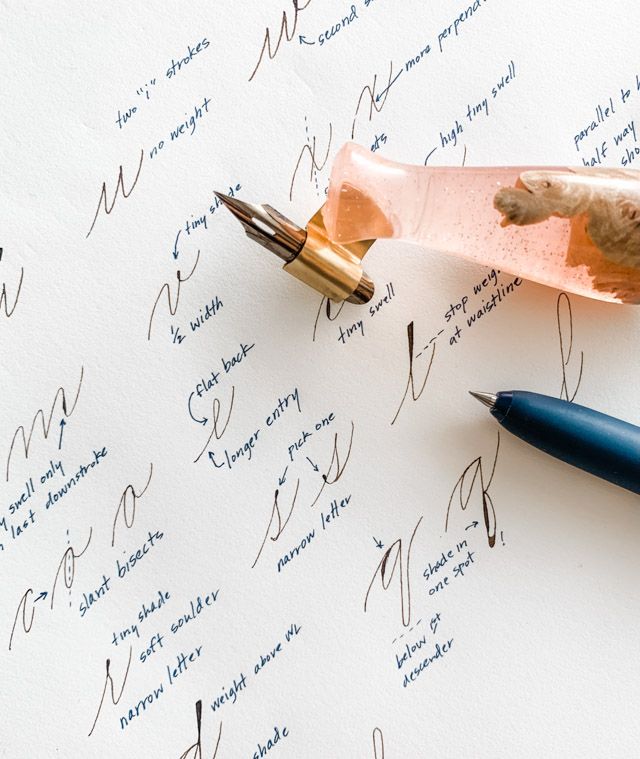 w
second
two "i" strokes
more perpend
x
u
no weight
x
high tiny swell
parallel to
half way
tiny shade
v
1/2 width
tiny swell
stop weig
at waistline
t
l
flat back
e
longer entry
m
swell only
last downstroke
pick one
s s
narrow letter
a
c a
slant bisects
q
q
shade in
one spot
!
below 1st
descender
tiny shade
soft soulder
r
narrow letter
weight above WL
d
shade